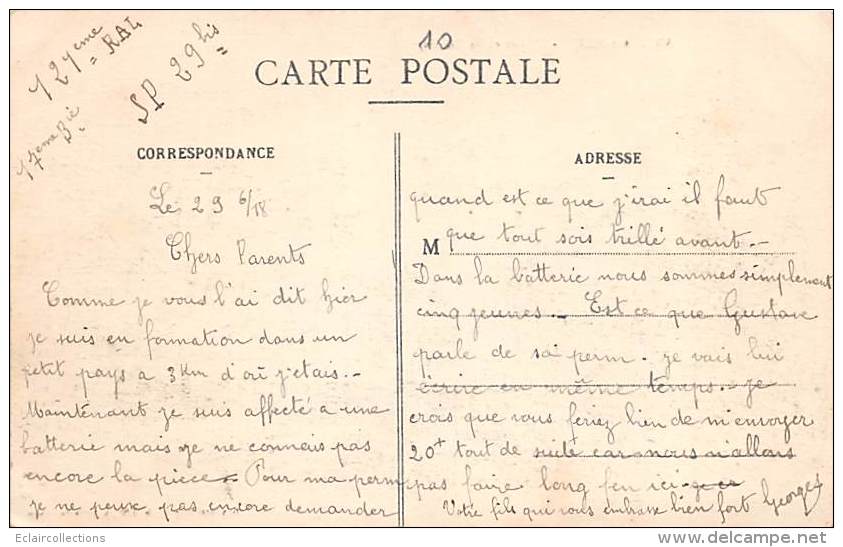 10
127eme RAL
17eme Bie
SP 29 bis
CARTE POSTALE
CORRESPONDANCE
Le 29 6/18
Chers Parents
Comme je vous l'ai dit hier
je suis en formation dans un
petit pays a 3 Km d'où j'etais.-
Maintenant je suis affecté a une
batterie mais je ne connais pas
encore la piece. Pour ma perm
je ne peux pas encore demander
ADRESSE
quand est ce que j'irai il faut
M
que tout sois trillé avant.-
Dans la batterie nous sommes simplement
cinq jeunes.- Est ce que Gustave
parle de sa perm. je vais lui
écrire en même temps.- je
crois que vous feriez bien de m'envoyer
20f tout de suite car nous n'allons
pas faire long feu ici
Votre fils qui vous embrasse bien fort Georges
Eclaircollections
delcampe.net